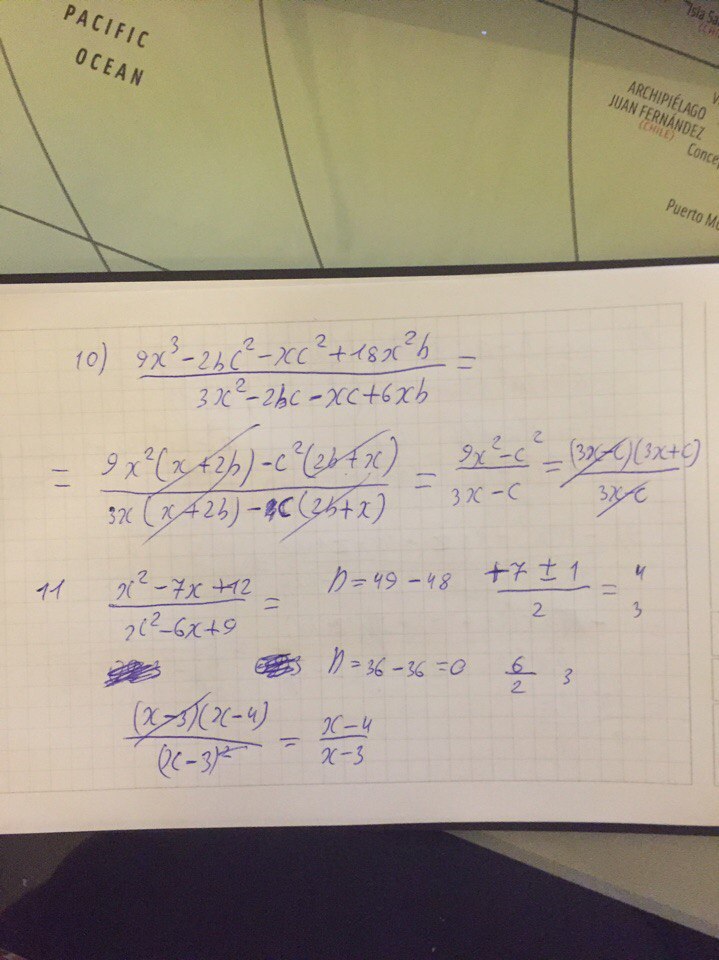 PACIFIC
OCEAN
ARCHIPIÉLAGO
JUAN FERNÁNDEZ
(CHILE)
Puerto
10) (9x³-2bc²-xc²+18x²b)/(3x²-2bc-xc+6xb) =
= (9x²(x+2b)-c²(2b+x))/(3x(x+2b)-c(2b+x)) = (9x²-c²)/(3x-c) = ((3x-c)(3x+c))/(3x-c)
11 (x²-7x+12)/(x²-6x+9) = D=49-48 (+7±1)/2 = 4 3
D=36-36=0 6/2 3
((x-3)(x-4))/(x-3)² = (x-4)/(x-3)